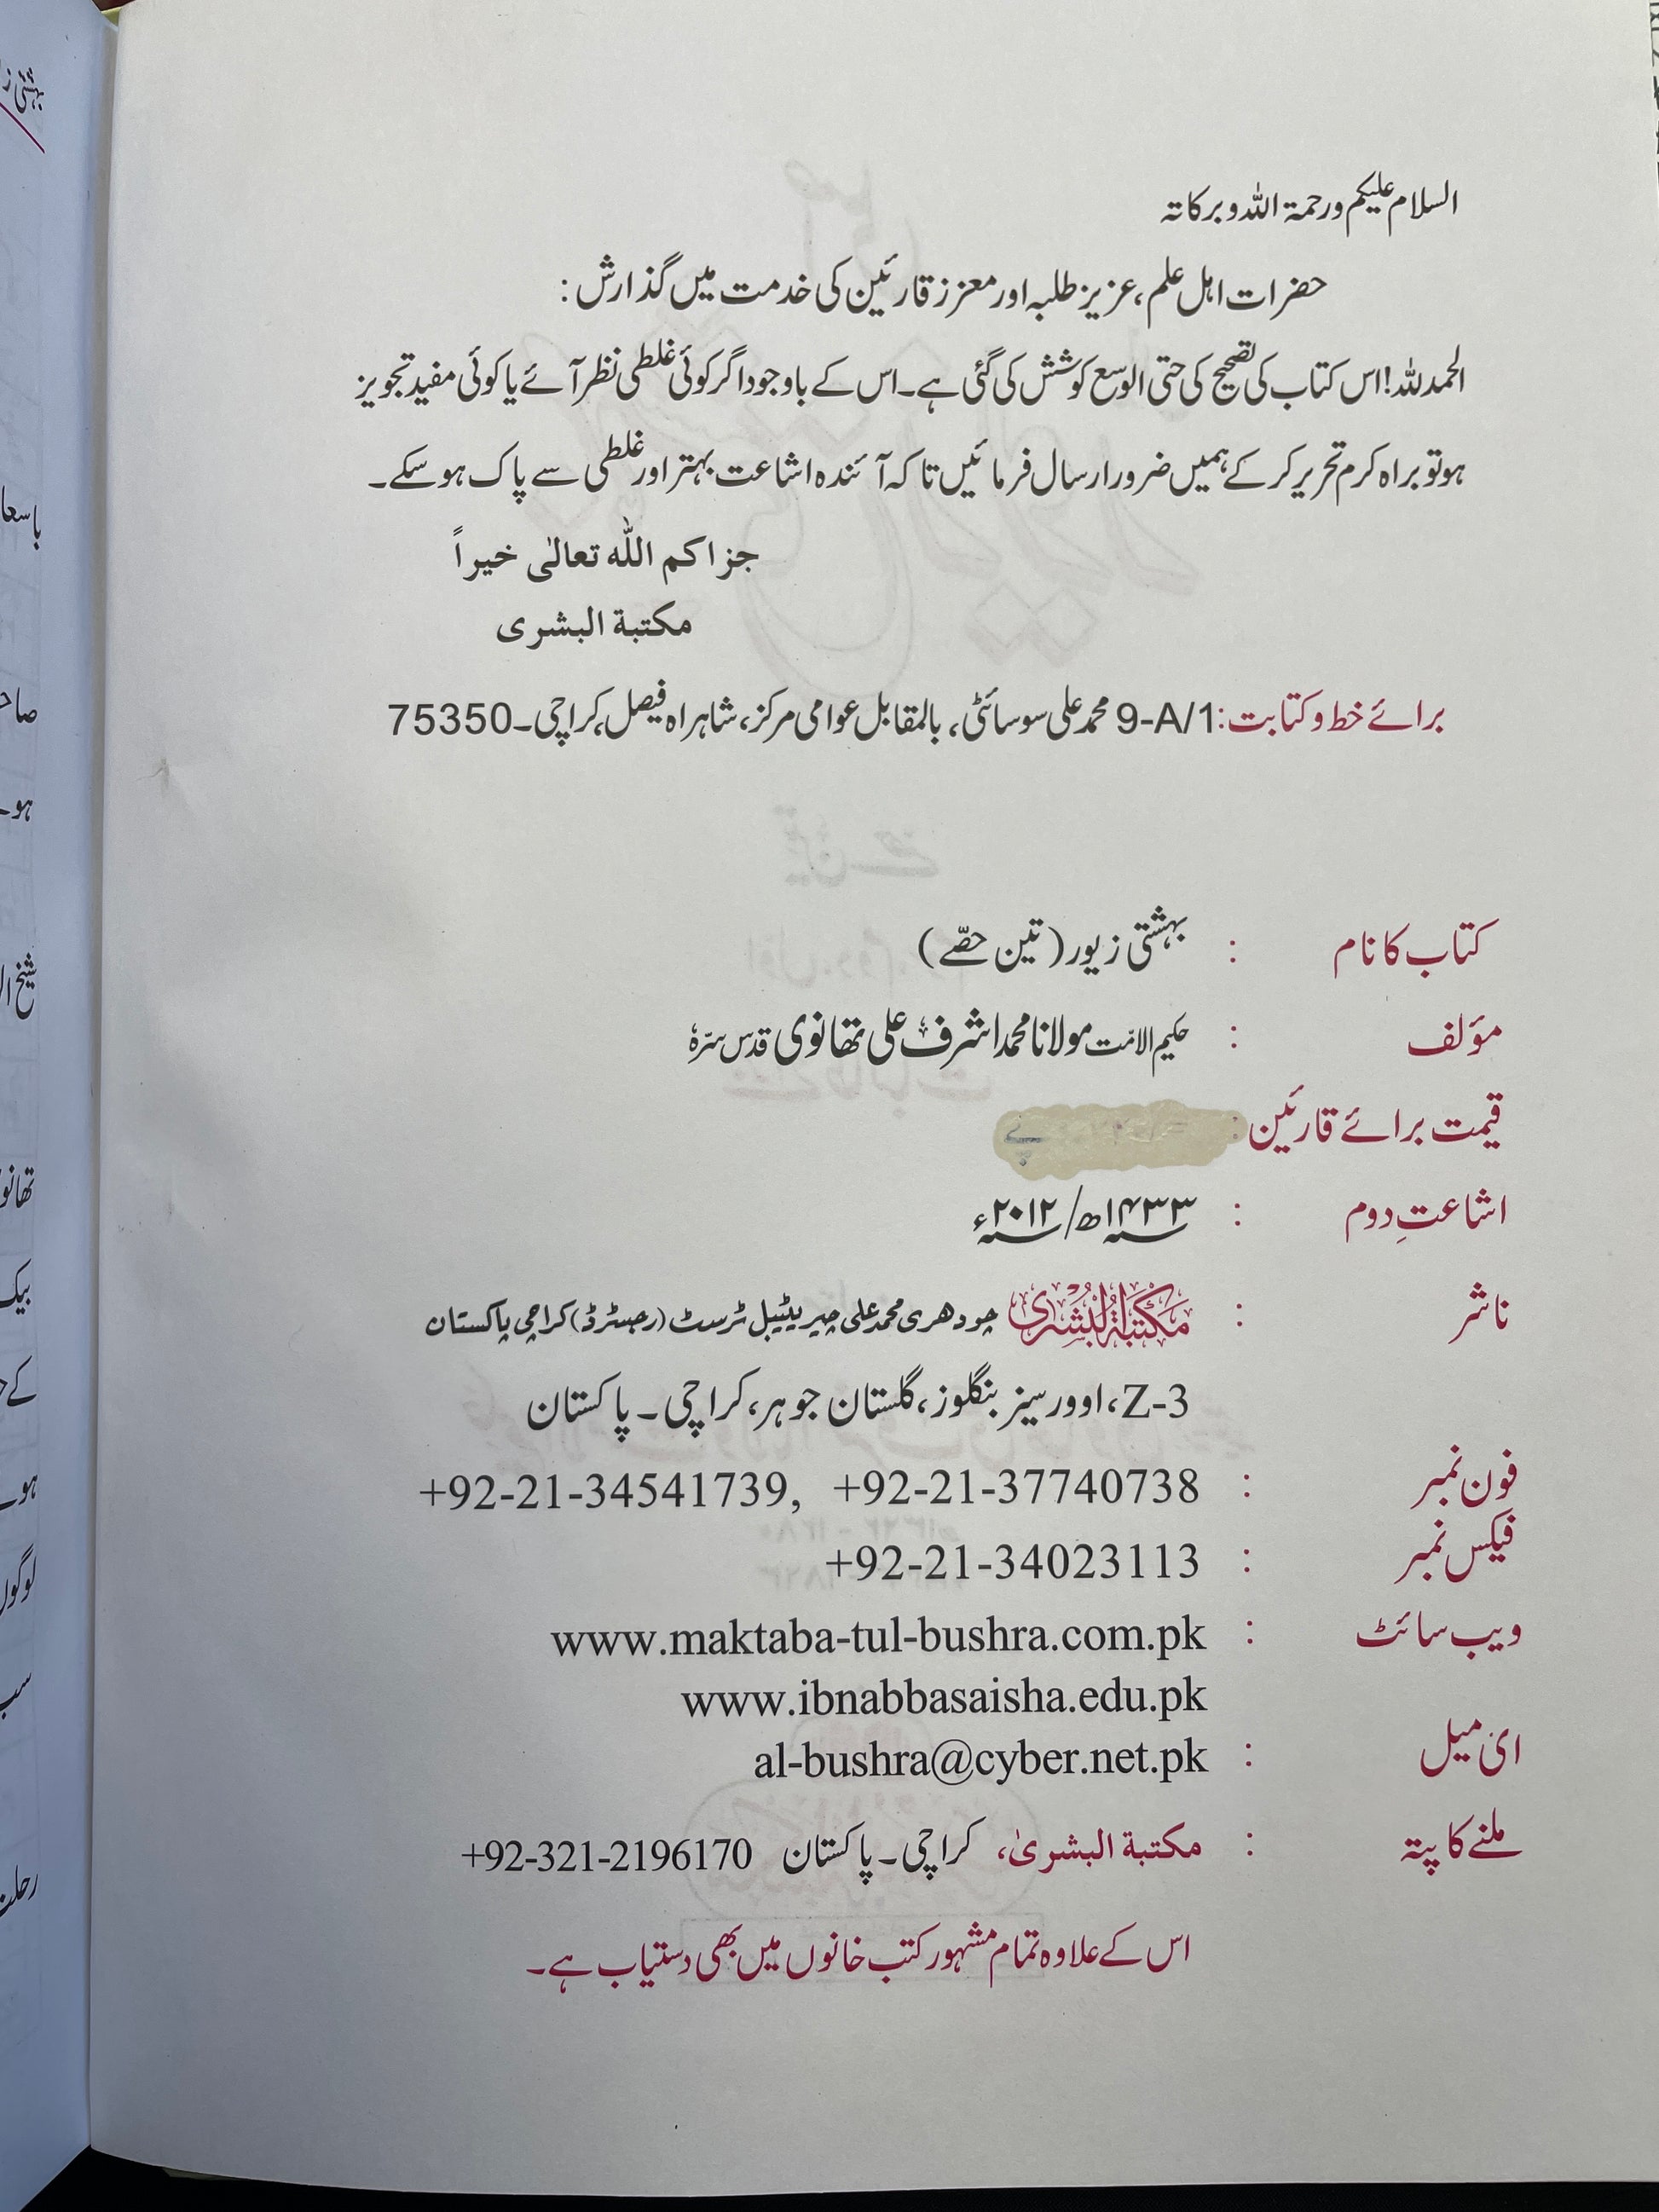 السلام علیکم ورحمۃ اللہ وبرکاتہ
حضرات اہل علم، عزیز طلبہ اور معزز قارئین کی خدمت میں گذارش:
الحمدللہ! اس کتاب کی تصحیح کی حتی الوسع کوشش کی گئی ہے۔ اس کے باوجود اگر کوئی غلطی نظر آئے یا کوئی مفید تجویز
ہو تو براہ کرم تحریر کر کے ہمیں ضرور ارسال فرمائیں تاکہ آئندہ اشاعت بہتر اور غلطی سے پاک ہو سکے۔
جزاکم اللہ تعالٰی خیراً
مکتبة البشری
برائے خط و کتابت: 9-A/1 محمد علی سوسائٹی، بالمقابل عوامی مرکز، شاہراہ فیصل، کراچی۔ 75350
کتاب کا نام : بہشتی زیور (تین حصّے)
مؤلف : حکیم الامّت مولانا محمد اشرف علی تھانوی قدس سرّہٗ
قیمت برائے قارئین :
اشاعتِ دوم : ۱۴۳۳ھ/ ۲۰۱۲ء
ناشر : مَکْتَبَةُ الْبُشْرٰی چودھری محمد علی چیریٹیبل ٹرسٹ (رجسٹرڈ) کراچی پاکستان
Z-3، اوورسیز بنگلوز، گلستان جوہر، کراچی۔ پاکستان
فون نمبر : +92-21-34541739, +92-21-37740738
فیکس نمبر : +92-21-34023113
ویب سائٹ : www.maktaba-tul-bushra.com.pk
www.ibnabbasaisha.edu.pk
ای میل : al-bushra@cyber.net.pk
ملنے کا پتہ : مکتبة البشریٰ، کراچی۔ پاکستان +92-321-2196170
اس کے علاوہ تمام مشہور کتب خانوں میں بھی دستیاب ہے۔